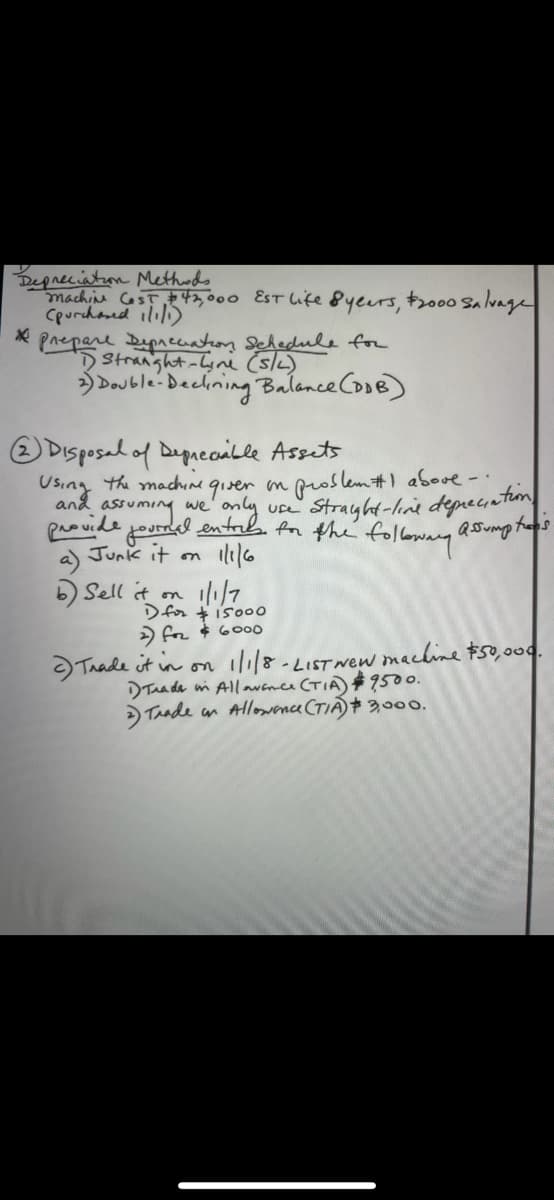 Depreciation Methods
Machine Cost $42,000 EST Life 8 years, $2000 Salvage
(purchased 1/1/1)
* Prepare Depreciation Schedule for
1) Straight-Line (S/L)
2) Double-Declining Balance (DDB)
② Disposal of Depreciable Assets
Using the machine given in problem #1 above -
and assuming we only use Straight-line depreciation,
provide journal entries for the following assumptions
a) Junk it on 1/1/6
b) Sell it on 1/1/7
1) for $15000
2) for $6000
c) Trade it in on 1/1/8 - LIST NEW machine $50,000.
1) Trade in Allowance (TIA) $9500.
2) Trade in Allowance (TIA) $3,000.